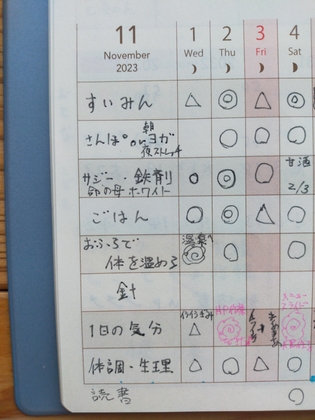 11
November
2023
1 2 3 4
Wed Thu Fri Sat
すいみん △ ◎ △ ◎
さんぽ or ヨガ 朝
夜ストレッチ
○ ○ ○
サジー・鉄剤 ○ ◎ ○ 甘酒
命の母ホワイト 2/3
ごはん ○ ◎ △ ○
おふろで 温泉へ
体を温める ○ ○
針
1日の気分 イライラぎみ △
体調・生理 △ ○ △ ○
読書 ○